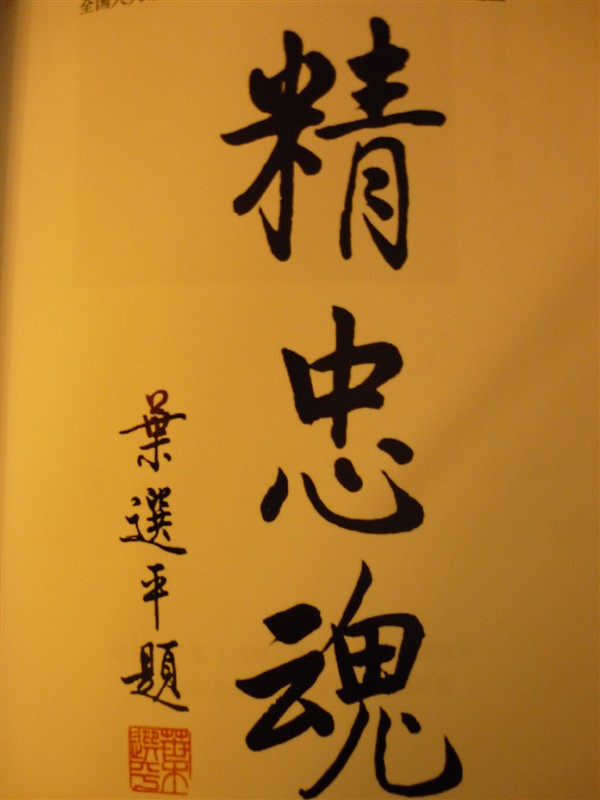 全国人大
精忠魂
葉選平題
葉選平